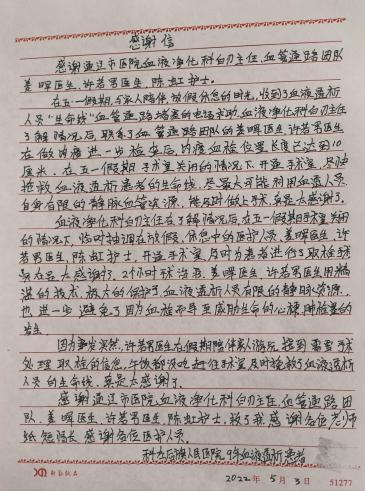 感谢信
感谢通辽市医院血液净化科白卫主任、血管通路团队
姜晖医生、许若男医生、陈虹护士。
在五一假期,与家人陪伴,放假休息的时光,收到了血液透析
人员"生命线"血管通路堵塞的电话求助,血液净化科白卫主任
了解情况后,联系了血管通路团队的姜晖医生,许若男医生
在做内瘘进一步检查后,内瘘血栓位置长度已达到10
厘米。在五一假期手术室关闭的情况下,开通手术室,尽快
抢救血液透析患者的生命线,尽最大可能利用血透人员
自身有限的静脉血管资源,能及时做上手术,真是太感谢了。
血液净化科白卫主任在了解情况后,在五一假期手术室关闭
的情况下,临时抽调在放假、休息中的医护人员,姜晖医生、许
若男医生,陈虹护士,开通手术室及时为患者进行了取栓手术
实在是太感谢了。2个小时
姜晖医生、许若男医生用精
湛的技术,极大的保护了血液透析人员有限的静脉资源,
也进一步避免了因为血栓而导至威胁生命的心梗、肺栓塞的
发生。
因为事发突然,许若男医生在假期陪伴家人游玩,接到需要手术
处理取栓的信息,午饭都没吃,赶往手术室及时挽救了血液透析
人员的生命线,真是太感谢了。
感谢通辽市医院血液净化科白卫主任、血管通路团
队、姜晖医生、许若男医生、陈虹护士,救了我,感谢各位老师
纸短情长,感谢各位医护人员。
科左后旗人民医院,9年血液透析患者
2022年5月3日
51277